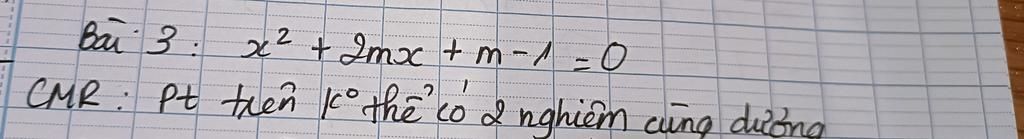 Bài 3: x² + 2mx + m - 1 = 0
CMR: Pt trên k° thể có 2 nghiệm cùng dương